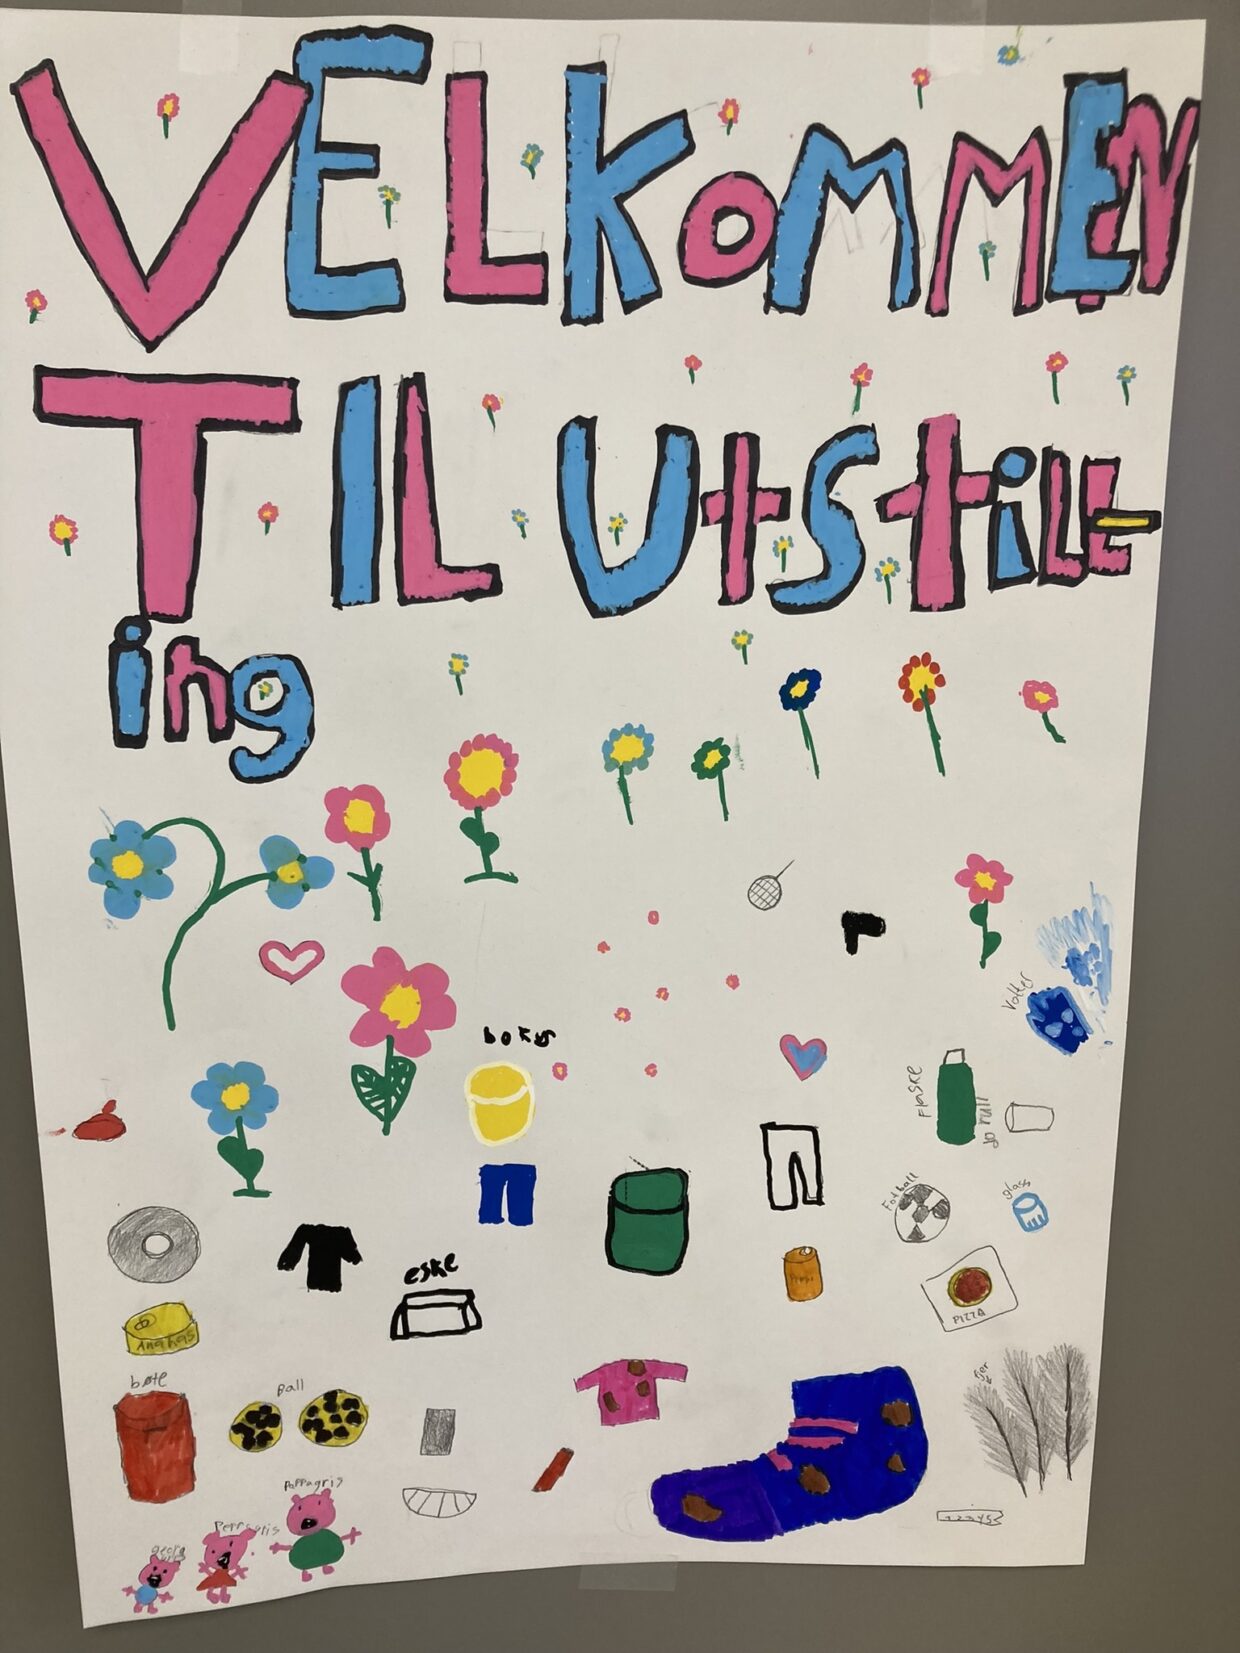 VELKOMMEN
TIL UtStiLL-
ing
boks
Votter
Flaske
do rull
Fotball
glass
eske
Pepsi
PIZZA
Ananas
bøte
Ball
Fjær
Pappagris
Peppagris
georg
12345